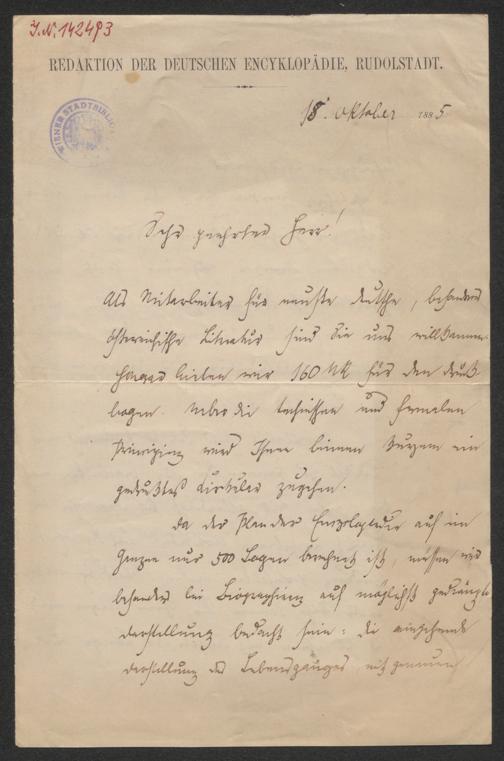 J.N. 142493
REDAKTION DER DEUTSCHEN ENCYKLOPÄDIE, RUDOLSTADT.
18. Oktober 1885
WIENER STADTBIBLIO
Sehr geehrter Herr!
Als Mitarbeiter für neuste deutsche, besonders
österreichische Literatur sind Sie uns willkommen.
bieten wir 160 Mk für den Druck-
bogen. Ueber die technischen und formalen
Principien wird Ihnen binnen Kurzem ein
gedrucktes Circular zugehen.
Da der Plan der Encyclopädie auf im
Ganzen nur 500 Bogen berechnet ist, müssen wir
besonders bei Biographieen auf möglichst gedrängte
Darstellung bedacht sein: die
Darstellung des Lebensganges